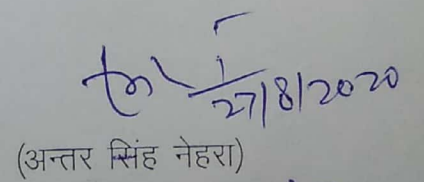 27/8/2020
(अन्तर सिंह नेहरा)